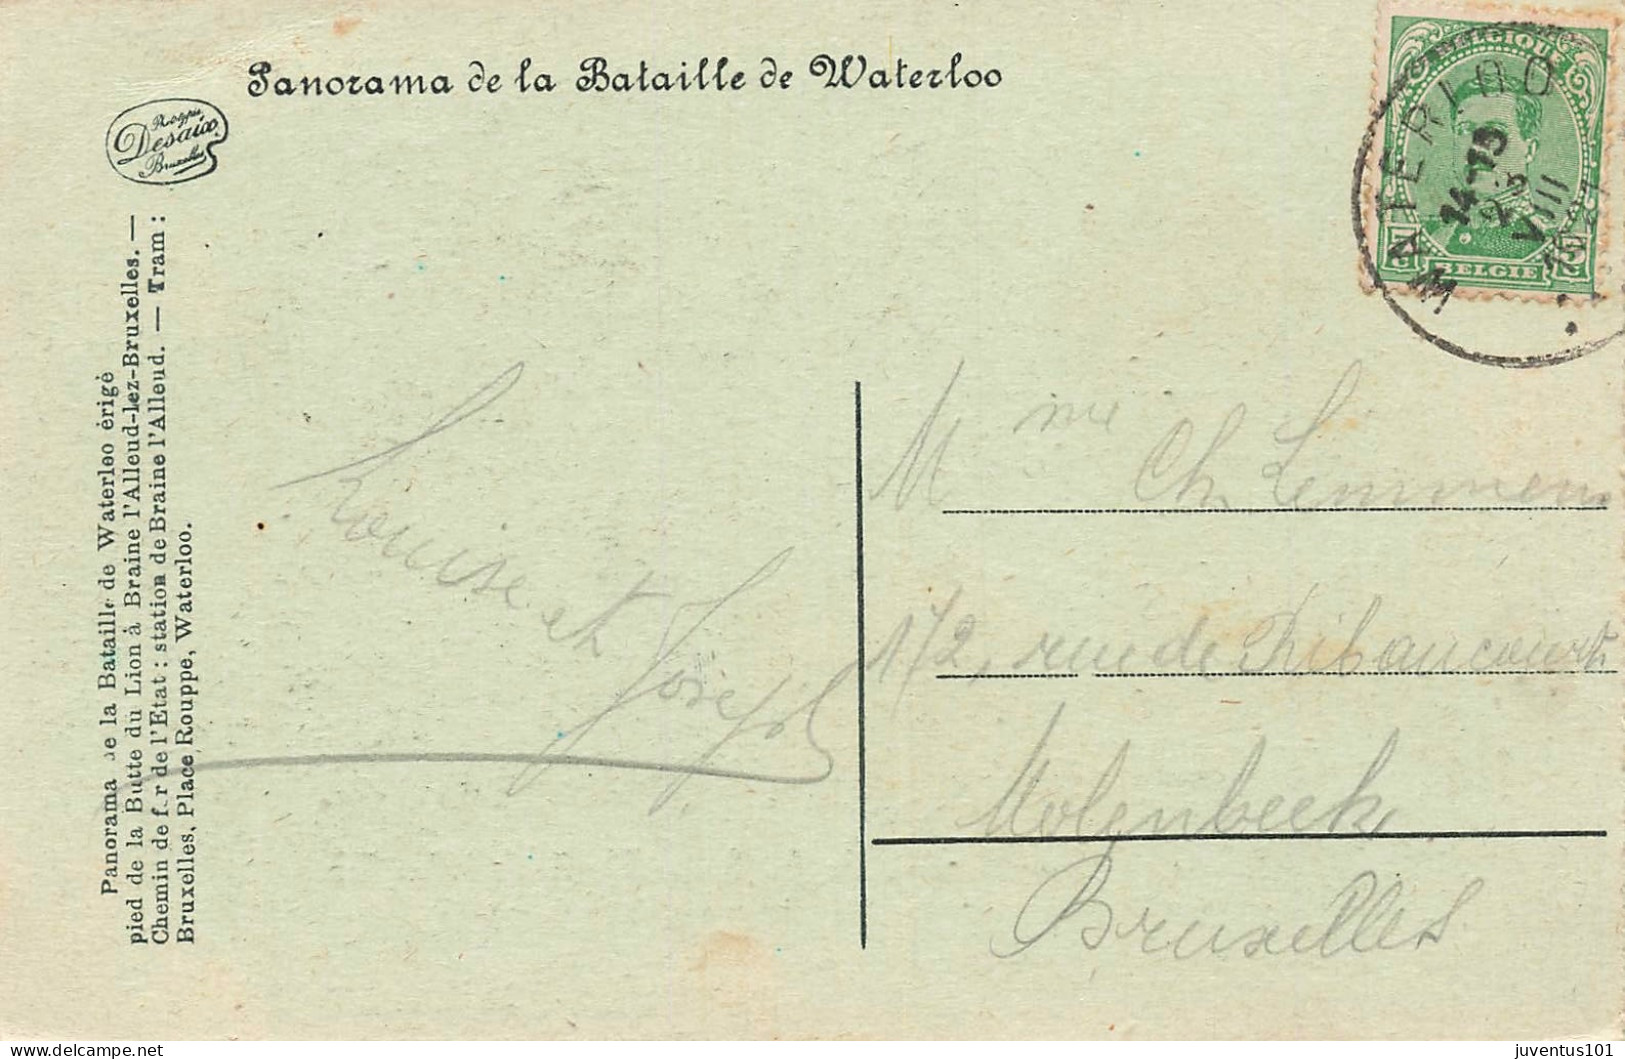 Panorama de la Bataille de Waterloo
Phototypie
Desaix
Bruxelles
Panorama de la Bataille de Waterloo érigé
pied de la Butte du Lion à Braine l'Alleud-lez-Bruxelles. —
Chemin de f.r de l'Etat : station de Braine l'Alleud. — Tram :
Bruxelles, Place Rouppe, Waterloo.
BELGIQUE
5 5
BELGIE
WATERLOO
14-15
23
VIII
Louise et Joseph
Mme Ch. Lemmens
172, rue de Ribaucourt
Molenbeek
Bruxelles
delcampe.net
juventus101